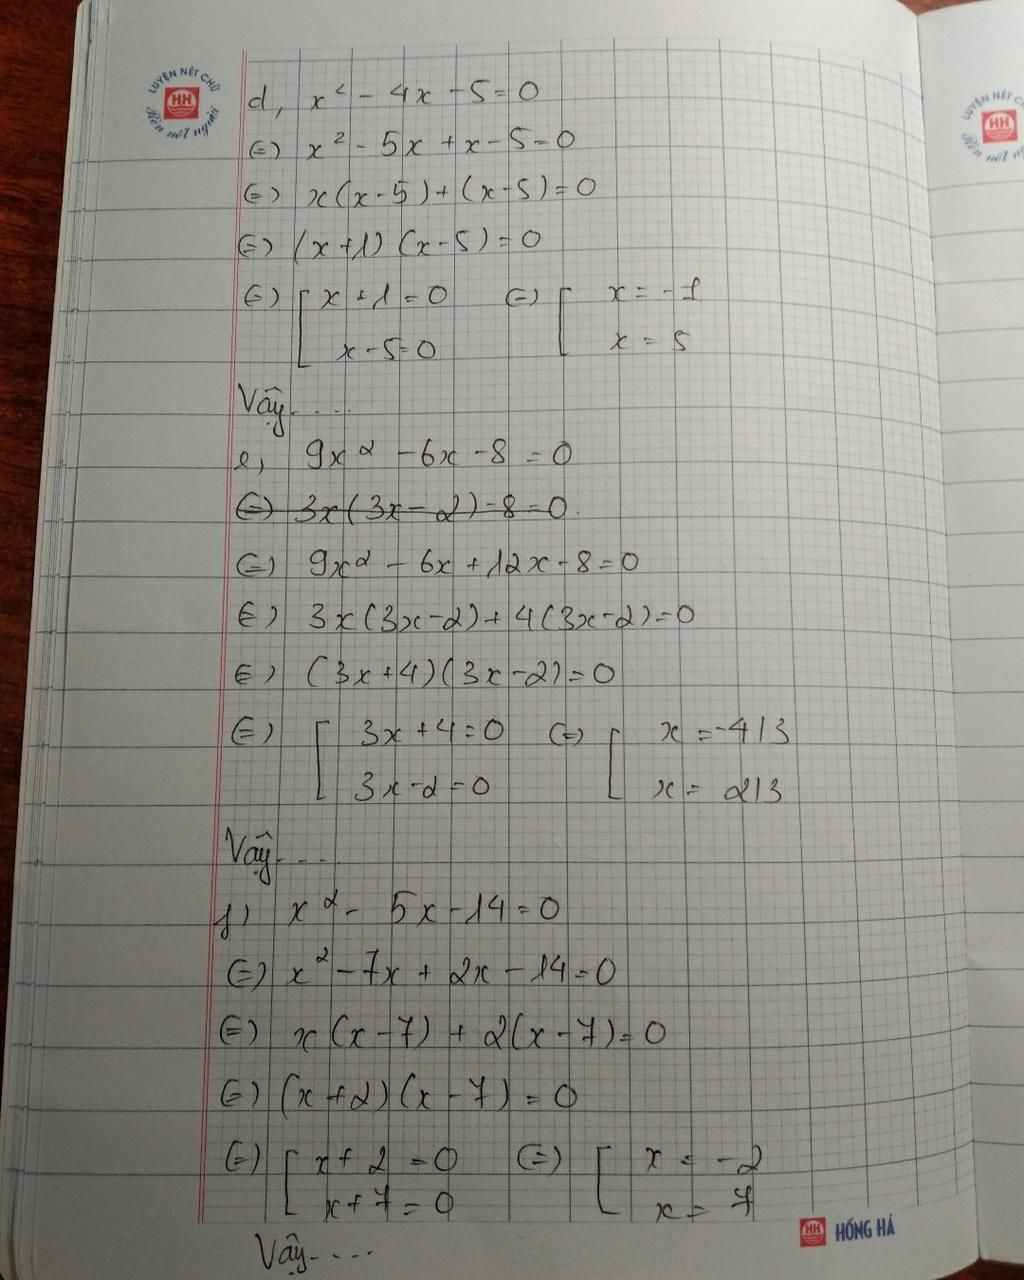 LUYỆN NÉT CHỮ
HH
Rèn nết người
d, x² - 4x - 5 = 0
(=) x² - 5x + x - 5 = 0
(=) x(x-5) + (x-5) = 0
(=) (x+1) (x-5) = 0
(=) [ x + 1 = 0 (=) [ x = -1
x - 5 = 0 x = 5
Vậy ....
e, 9x² - 6x - 8 = 0
(=) 3x(3x-2)-8=0
(=) 9x² - 6x + 12x - 8 = 0
(=) 3x(3x-2) + 4(3x-2) = 0
(=) (3x+4)(3x-2) = 0
(=) [ 3x+4=0 (=) [ x = -4/3
3x-2=0 x = 2/3
Vậy ...
f) x² - 5x - 14 = 0
(=) x² - 7x + 2x - 14 = 0
(=) x(x-7) + 2(x-7) = 0
(=) (x+2)(x-7) = 0
(=) [ x + 2 = 0 (=) [ x = -2
x + 7 = 0 x = 7
Vậy ....
HH HỒNG HÀ
LUYỆN NÉT
HH
Rèn nết